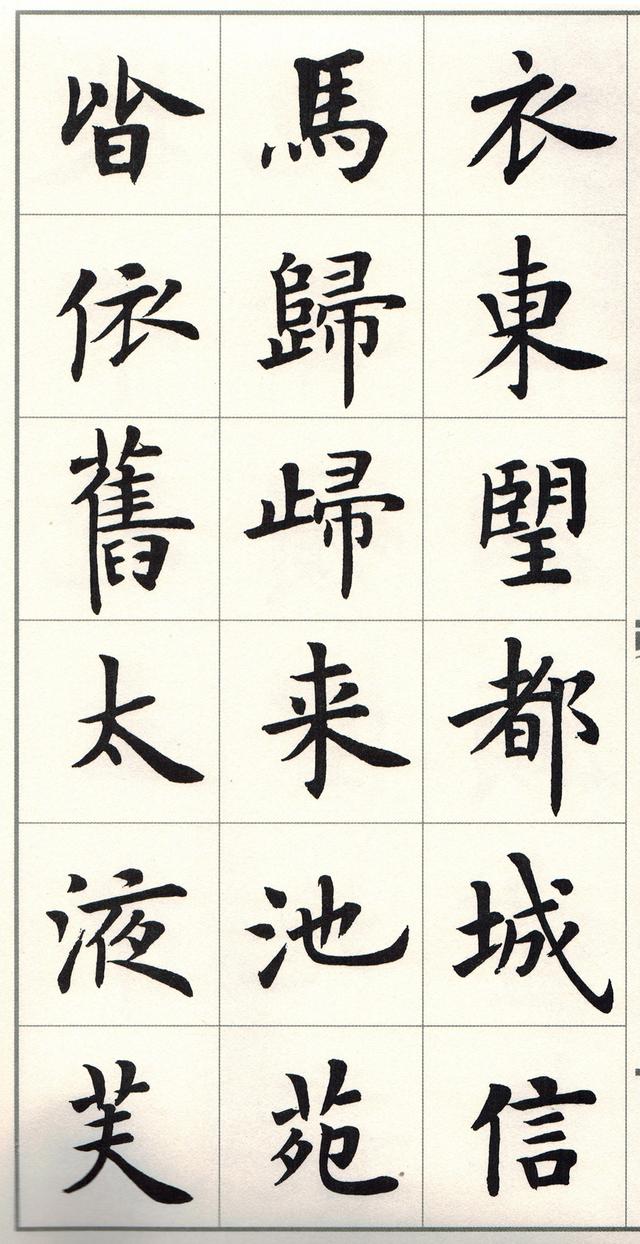 衣東望都城信
馬歸歸来池苑
皆依舊太液芙